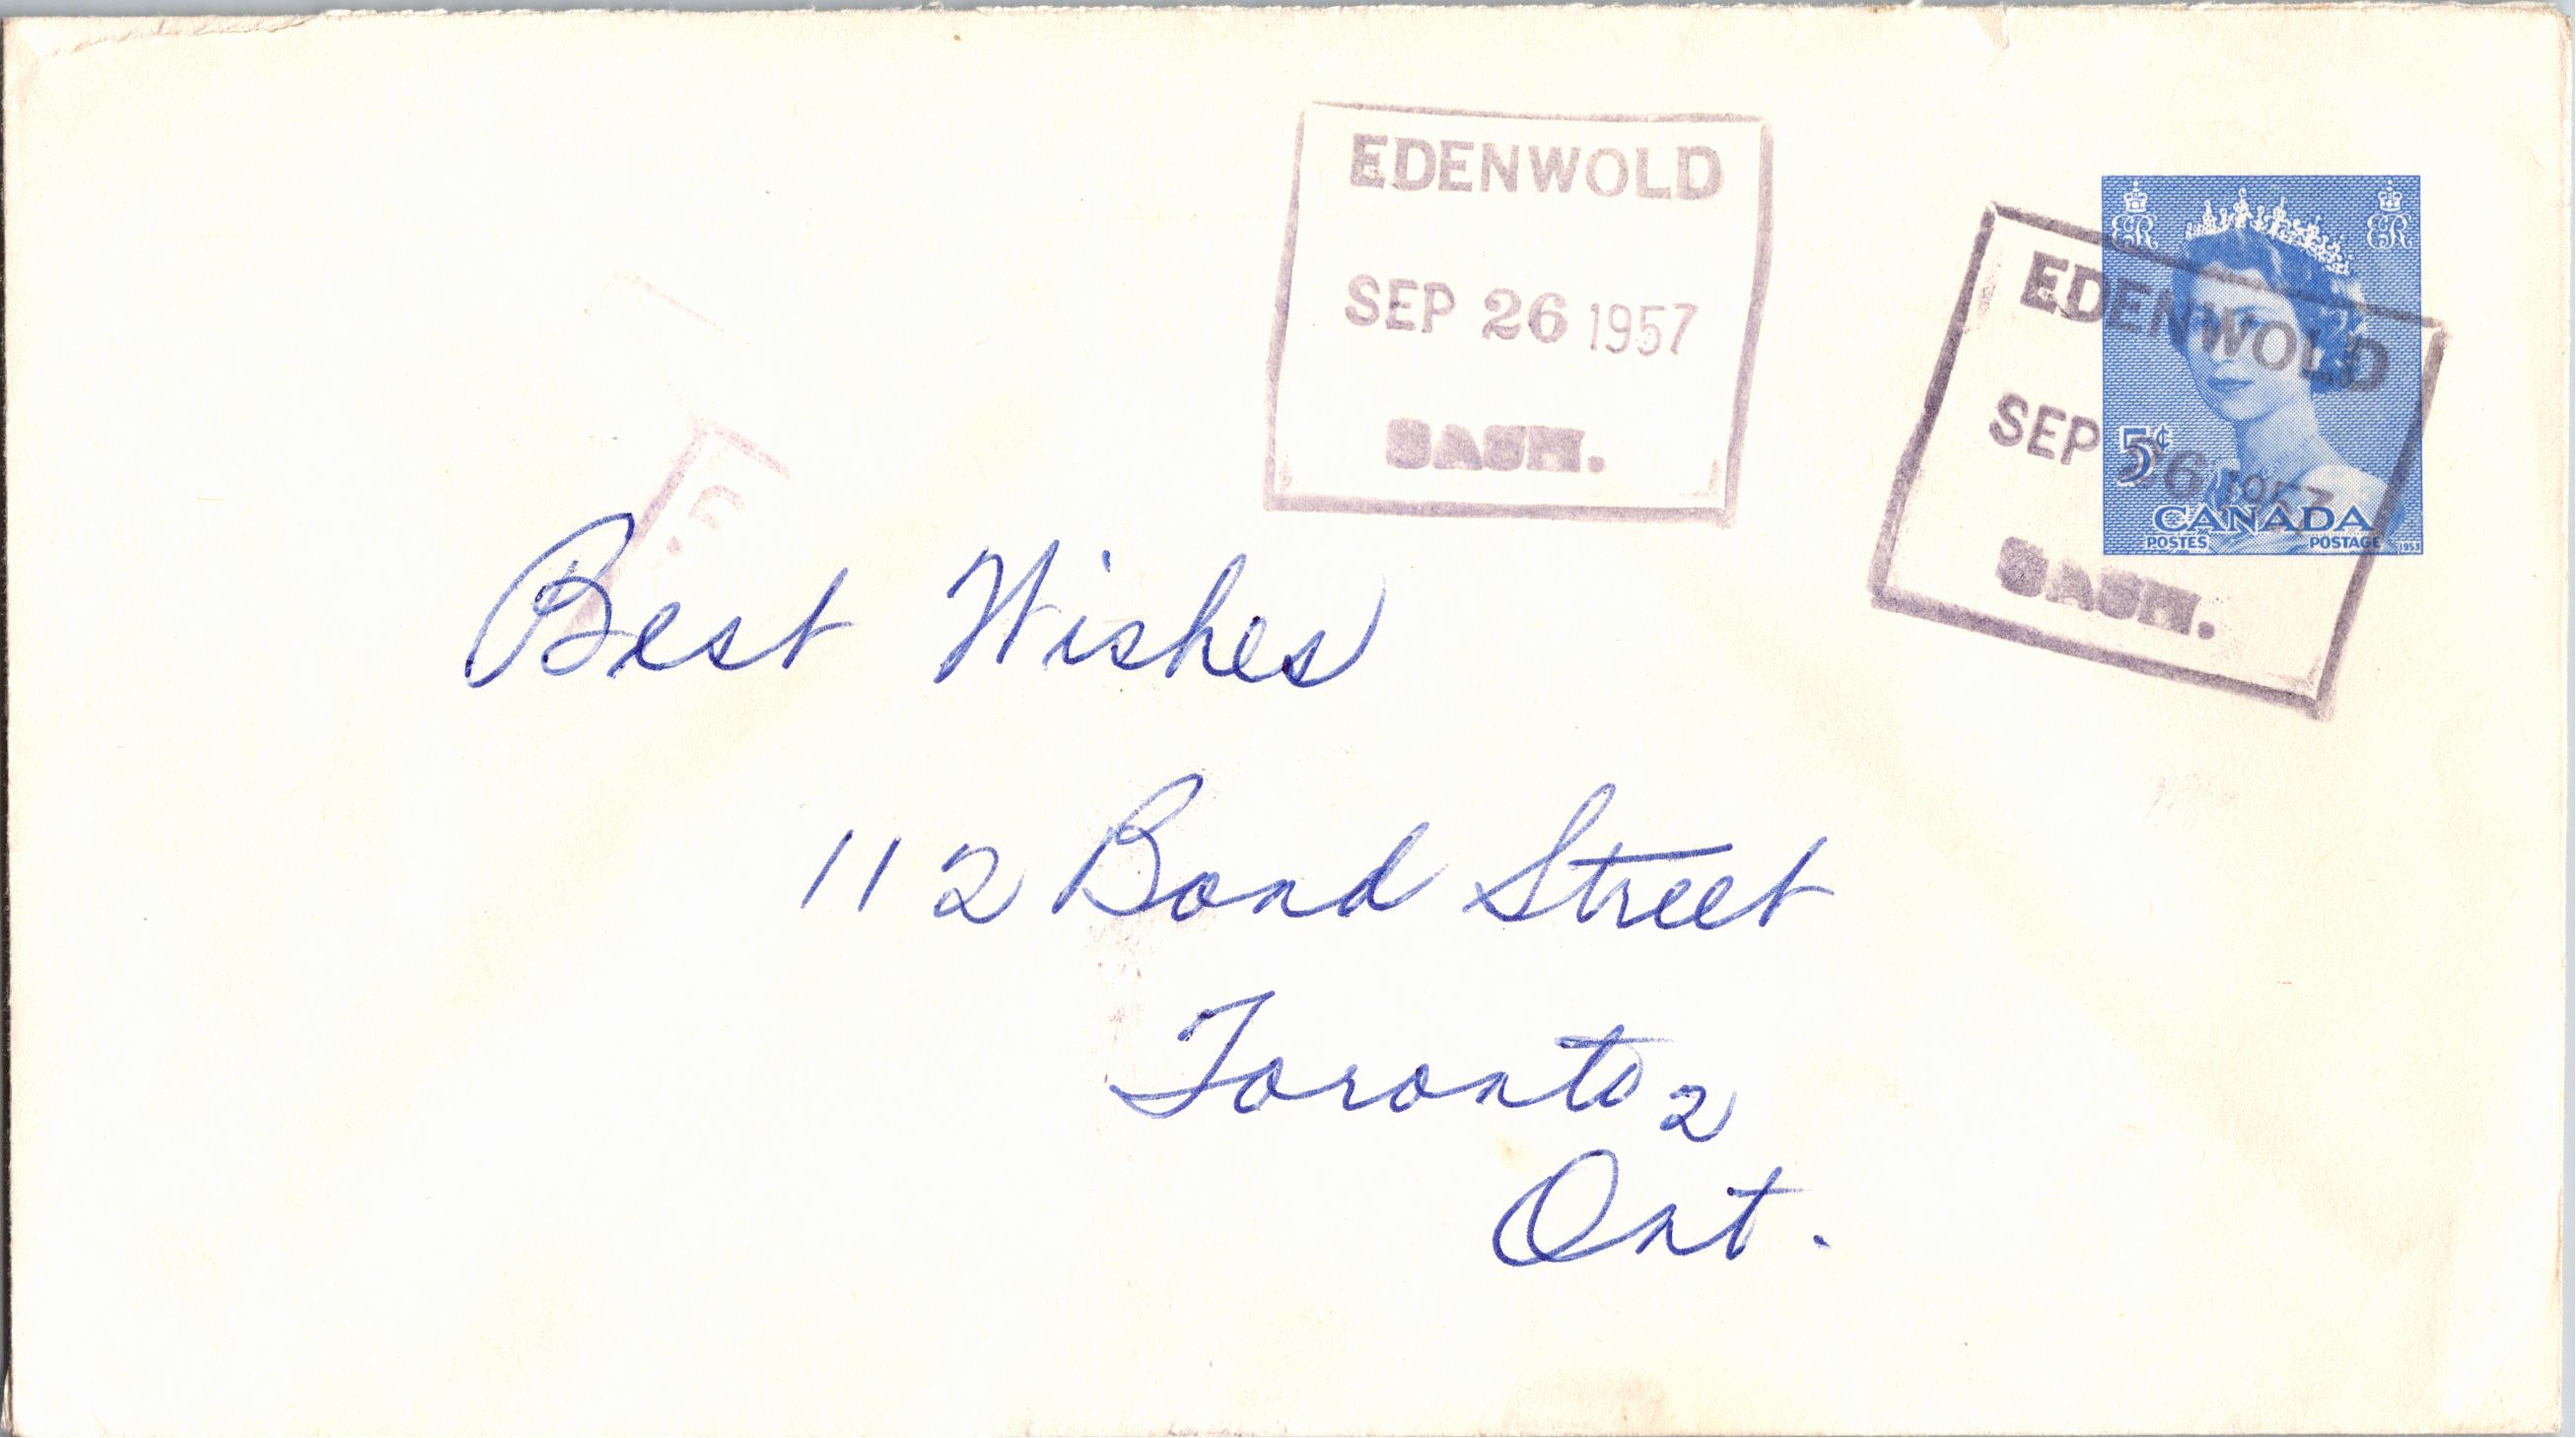 EDENWOLD
SEP 26 1957
SASK.
EDENWOLD
SEP 26 1957
SASK.
5¢
CANADA
POSTES POSTAGE 1953
Best Wishes
112 Bond Street
Toronto 2
Ont.